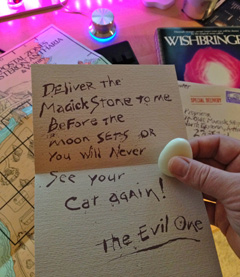 WISHBRINGER
SPECIAL DELIVERY
DELIVER THE
MAGICK STONE TO ME
BEFORE THE
MOON SETS OR
YOU WILL NEVER
SEE YOUR
CAT AGAIN!
The EVIL ONE